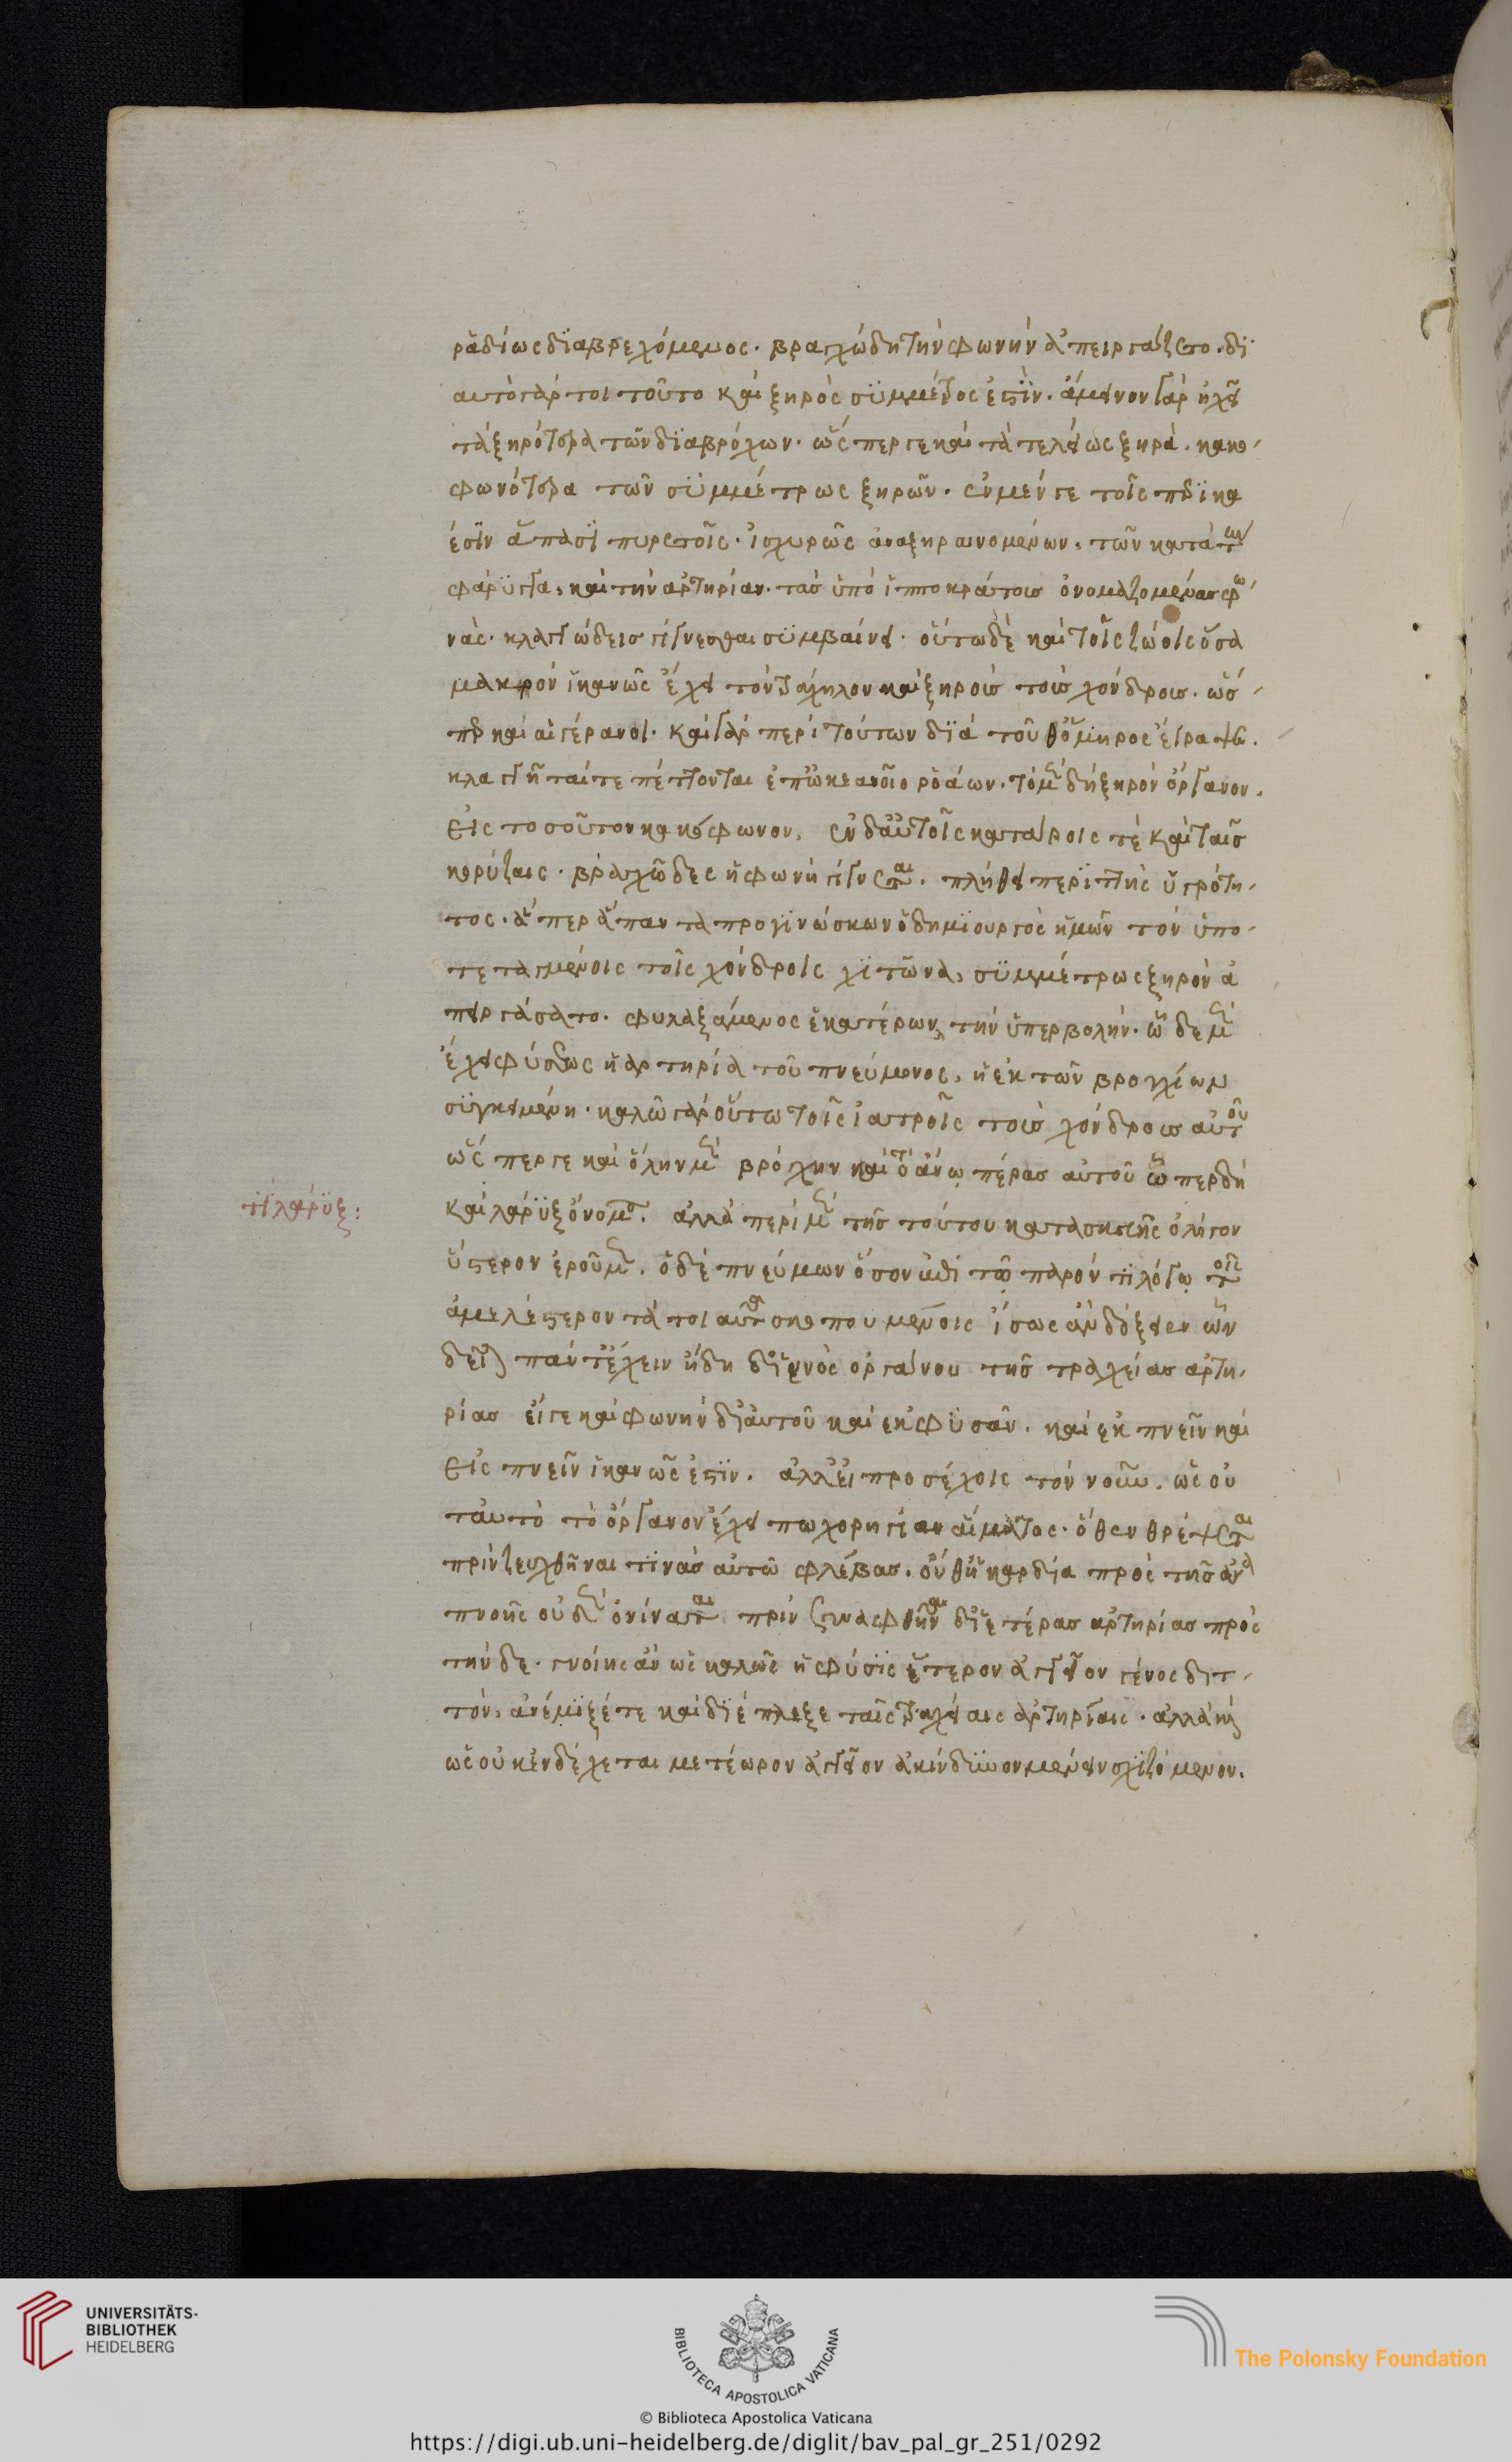 ῥᾳδίως διαβρεχόμενος. βραγχώδη τὴν φωνὴν ἀπειργάζετο. δι
αυτὸ γάρ τοι τοῦτο καὶ ξηρὸς συμμέτρως ἐστίν. ἄμεινον γὰρ ἠχεῖ
τὰ ξηρότερα τῶν διαβρόχων. ὥσπερ γε καὶ τὰ τελέως ξηρὰ. κακο
φωνότερα τῶν συμμέτρως ξηρῶν. ἐν μέν γε τοῖς περικα
έσιν ἅπασι πυρετοῖς. ἰσχυρῶς ἀναξηραινομένων. τῶν κατὰ τῶν
φάρυγγα, καὶ τὴν ἀρτηρίαν. τὰς ὑπὸ ἱπποκράτους ὀνομαζομένας φω
νὰς. κλαγγώδεις γίγνεσθαι συμβαίνει. οὕτω δὲ καὶ τοῖς ζώοις ὅσα
μακρὸν ἱκανῶς ἔχει τὸν τράχηλον καὶ ξηροὺς τοὺς χόνδρους. ὥσ
περ καὶ αἱ γέρανοι. καὶ γὰρ περὶ τούτων διὰ τοῦθ ὅμηρος ἔγραψεν.
κλαγγῇ ταί γε πέτονται ἐπ ὠκεανοῖο ῥοάων. τὸ μὲν δὴ ξηρὸν ὄργανον.
εἰς τοσοῦτον κακόφωνον. ἐν δ αὖ τοῖς κατάρροις τὲ καὶ ταῖς
κορύζαις. βραγχῶδες ἡ φωνὴ γίγνεται. πλήθει περιττῆς ὑγρότη
τος. ἅπερ ἅπαντα προγινώσκων ὁ δημιουργὸς ἡμῶν τὸν ὑπο
τεταγμένοις τοῖς χόνδροις χιτῶνα, συμμέτρως ξηρὸν ἀ
πειργάσατο. φυλαξάμενος ἑκατέρων τὴν ὑπερβολήν. ὧδε μὲν
ἔχει φύσεως ἡ ἀρτηρία τοῦ πνεύμονος. ἡ ἐκ τῶν βρογχίων
συγκειμένη. καλῶ γὰρ οὕτω τοῖς ἰατροῖς τοὺς χόνδρους αὐτοῦ
ὥσπερ γε καὶ ὅλην μὲν βρόγχην καὶ τὸ ἄνω πέρας αὐτοῦ ὅπερ δὴ
τί λάρυξ:
καὶ λάρυξ ὄνομα. ἀλλὰ περὶ μὲν τῆς τούτου κατασκευῆς ὀλίγον
ὕστερον ἐροῦμεν. ὁ δὲ πνεύμων ὅσον ἐπὶ τῷ παρόντι λόγῳ τοῖς
ἀμελέστερον τά τοιαῦτα σκοπουμένοις ἴσως ἂν δόξειεν ὧν
δεῖται πάντ ἔχειν ἤδη δι ἑνὸς ὀργάνου τῆς τραχείας ἀρτη
ρίας εἴγε καὶ φωνὴν δι αὐτοῦ καὶ ἐκφυσᾶν. καὶ ἐκπνεῖν καὶ
εἰσπνεῖν ἱκανῶς ἐστίν. ἀλλ εἰ προσέχοις τὸν νοῦν. ὡς οὐ
ταυτὸ τὸ ὄργανον ἔχει πω χορηγίαν αἵματος. ὅθεν θρέψεται
πρὶν ζευχθῆναι τινὰς αὐτῶ φλέβας. οὐθ ἡ καρδία πρὸς τῆς ἀνα
πνοῆς οὐδὲν ὀνίναται πρὶν συναφθῆναι δι ἑτέρας ἀρτηρίας πρὸς
τήνδε. γνοίης ἂν ὡς καλῶς ἡ φύσις ἕτερον ἀγγεῖον γένος διτ
τὸν. ἀνέμιξέ τε καὶ διέπλεξε ταῖς τραχείαις ἀρτηρίαις. ἀλλὰ καὶ
ὡς οὐκ ἐνδέχεται μετέωρον ἀγγεῖον ἀκίνδυνον μένειν σχιζόμενον.
UNIVERSITÄTS-
BIBLIOTHEK
HEIDELBERG
BIBLIOTECA APOSTOLICA VATICANA
The Polonsky Foundation
© Biblioteca Apostolica Vaticana
https://digi.ub.uni-heidelberg.de/diglit/bav_pal_gr_251/0292